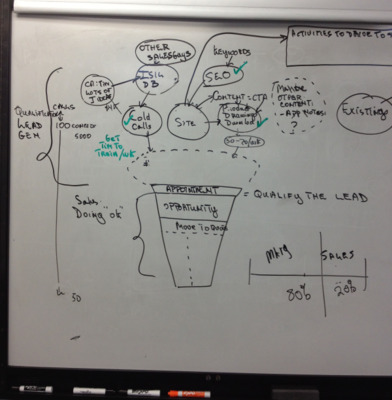 ACTIVITIES TO DRIVE TO
OTHER
SALESGUYS
KEYWORDS
SEO
DB
LOTS OF
CONTENT
CTA
MAYBE
OTHER
CONTENT:
- APP NOTES
?
EXISTING
Qualification
LEAD
GEN
CALLS
100
5000
Cold
Calls
SITE
Product
Drawing
Download
GET
TIM TO
TRAIN/WK
50-70/WK
APPOINTMENT
= QUALIFY THE LEAD
OPPORTUNITY
MOVE TO QUOTE
Sales
Doing "ok"
MKTG
SALES
80%
20%
50